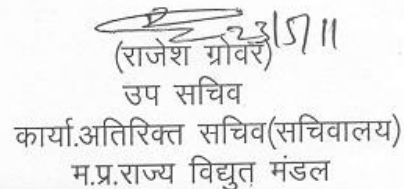 23/5/11
(राजेश ग्रोवर)
उप सचिव
कार्या.अतिरिक्त सचिव(सचिवालय)
म.प्र.राज्य विद्युत मंडल